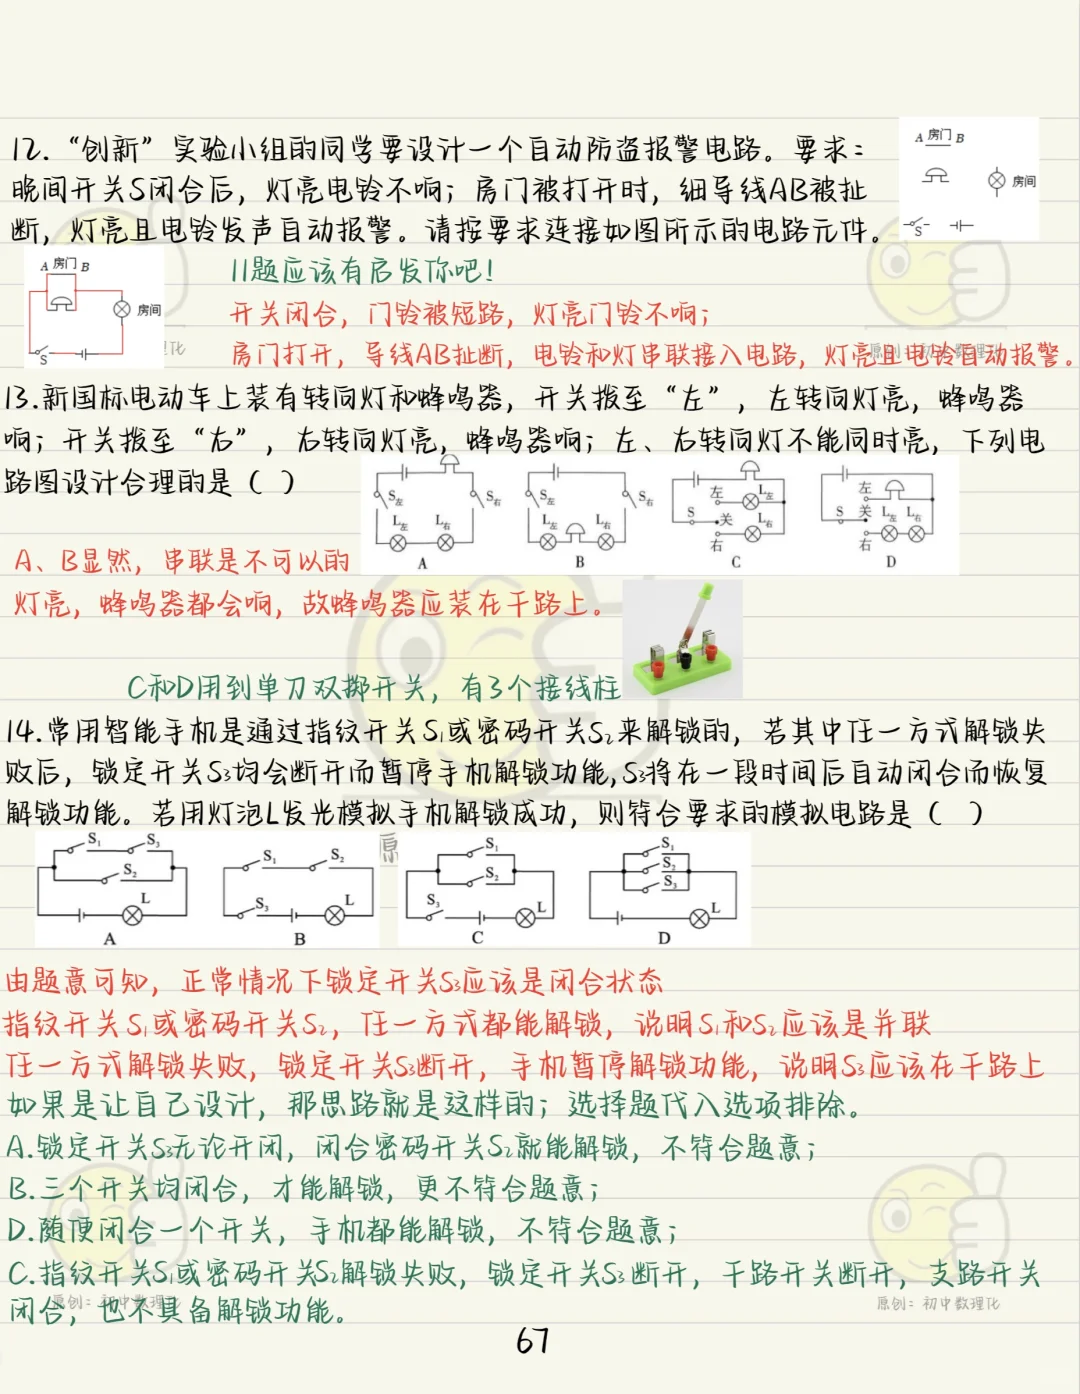 12. “创新”实验小组的同学要设计一个自动防盗报警电路。要求：
晚间开关S闭合后，灯亮电铃不响；房门被打开时，细导线AB被扯
断，灯亮且电铃发声自动报警。请按要求连接如图所示的电路元件。
A 房门 B
房间
S
A 房门 B
房间
S
11题应该有启发你吧！
开关闭合，门铃被短路，灯亮门铃不响；
房门打开，导线AB扯断，电铃和灯串联接入电路，灯亮且电铃自动报警。
13.新国标电动车上装有转向灯和蜂鸣器，开关拨至“左”，左转向灯亮，蜂鸣器
响；开关拨至“右”，右转向灯亮，蜂鸣器响；左、右转向灯不能同时亮，下列电
路图设计合理的是（ ）
S左 S右 L左 L右 A
S左 S右 L左 L右 B
左 L左 S 关 L右 右 C
左 S 关 L左 L右 右 D
A、B显然，串联是不可以的
灯亮，蜂鸣器都会响，故蜂鸣器应装在干路上。
C和D用到单刀双掷开关，有3个接线柱
14.常用智能手机是通过指纹开关S₁或密码开关S₂来解锁的，若其中任一方式解锁失
败后，锁定开关S₃均会断开而暂停手机解锁功能,S₃将在一段时间后自动闭合而恢复
解锁功能。若用灯泡L发光模拟手机解锁成功，则符合要求的模拟电路是（ ）
S₁ S₃ S₂ L A
S₁ S₂ S₃ L B
S₁ S₂ S₃ L C
S₁ S₂ S₃ L D
由题意可知，正常情况下锁定开关S₃应该是闭合状态
指纹开关S₁或密码开关S₂，任一方式都能解锁，说明S₁和S₂应该是并联
任一方式解锁失败，锁定开关S₃断开，手机暂停解锁功能，说明S₃应该在干路上
如果是让自己设计，那思路就是这样的；选择题代入选项排除。
A.锁定开关S₃无论开闭，闭合密码开关S₂就能解锁，不符合题意；
B.三个开关均闭合，才能解锁，更不符合题意；
D.随便闭合一个开关，手机都能解锁，不符合题意；
C.指纹开关S₁或密码开关S₂解锁失败，锁定开关S₃断开，干路开关断开，支路开关
闭合，也不具备解锁功能。
原创：初中数理化
原创：初中数理化
67